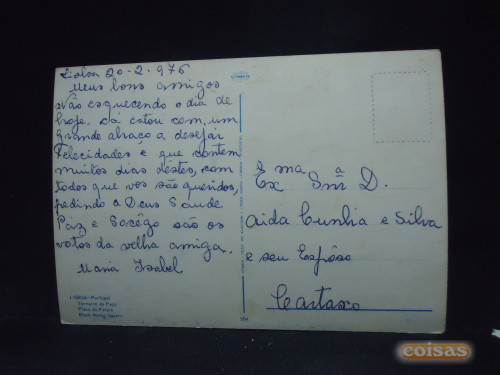 Lisboa 20-2-976
Meus bons amigos
Não esquecendo o dia de
hoje. Cá estou com, um
grande abraço a desejar
Felecidades e que contem
muitos dias dêstes, com
todos que vos são queridos,
pedindo a Deus Saude
Paz e Socêgo são os
votos da velha amiga.
Maria Isabel
LISBOA-Portugal
Terreiro do Paço
Place du Palais
Black Horse Square
Ex ma Snr a D.
Aida Cunha e Silva
e seu Espôso
Cartaxo
coisas